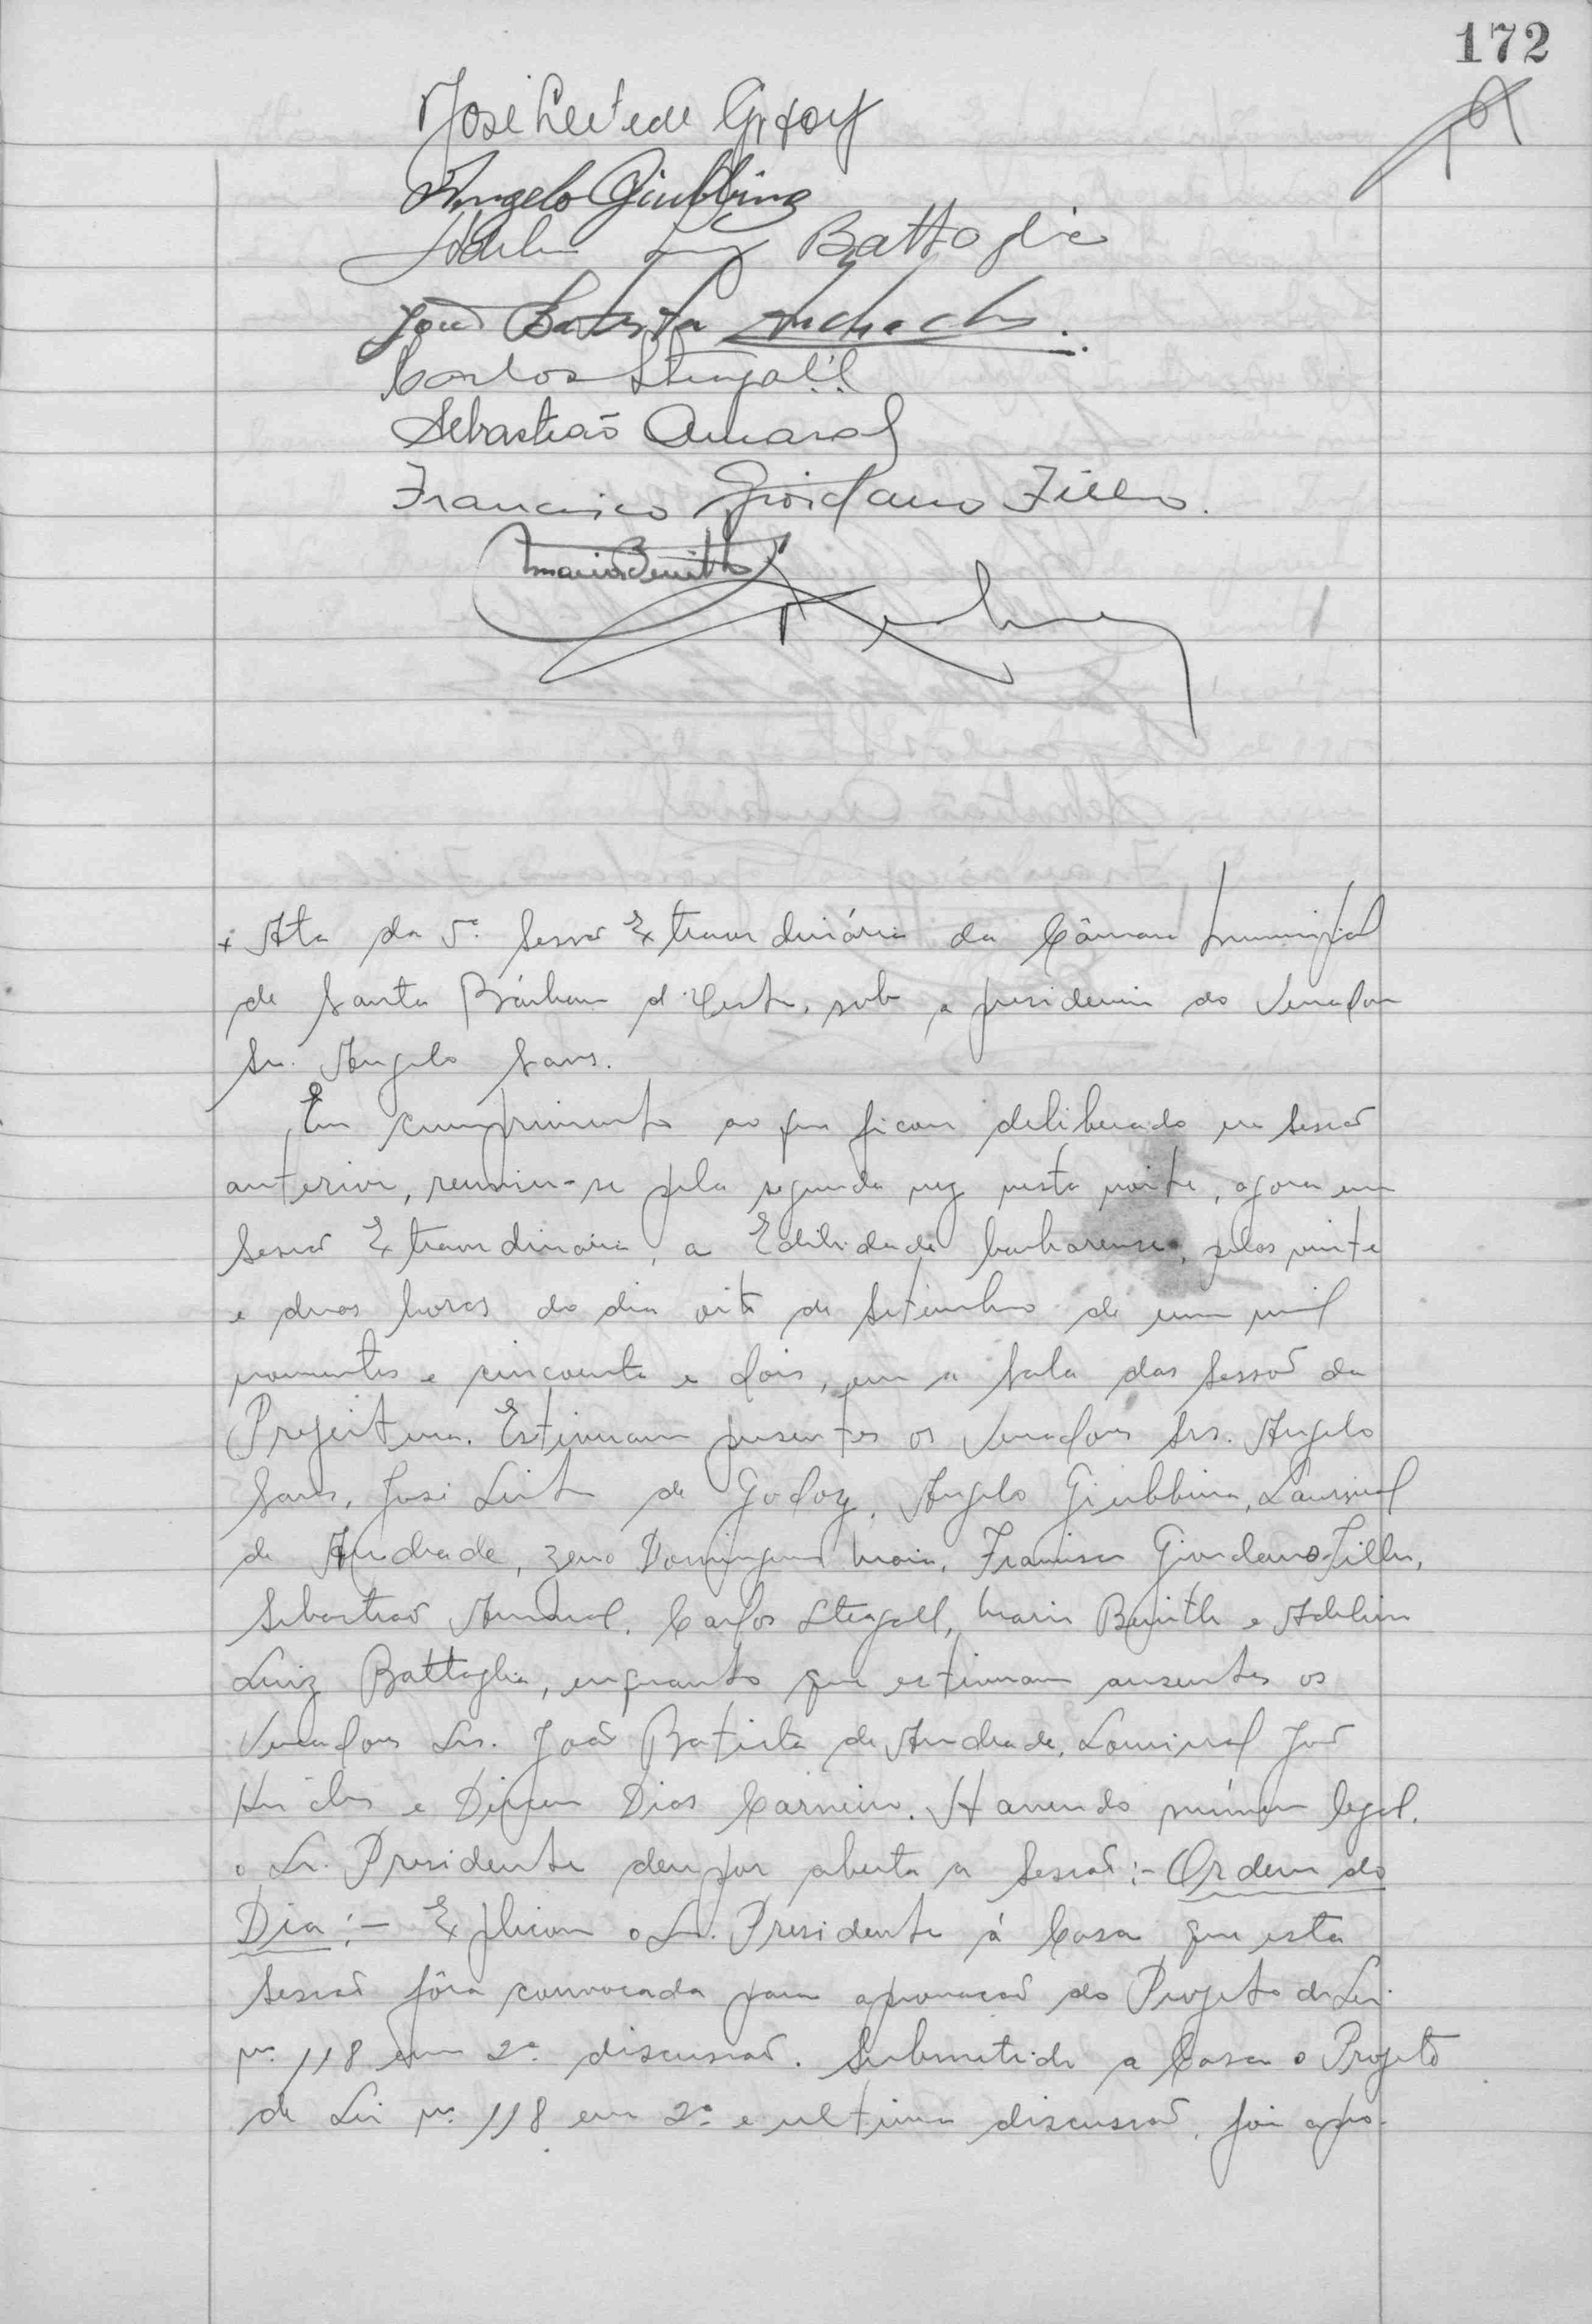 172
José Leite de Godoy
Angelo Giubbina
Adelino Luiz Battaglia
João Batista Andrade
Carlos Steagall
Sebastião Amaral
Francisco Giordano Filho.
Mario Benitti
+ Ata da 5ª Sessão Extraordinária da Câmara Municipal
de Santa Bárbara d'Oeste, sob a presidencia do Vereador
Sr. Angelo Sans.
Em cumprimento ao que ficou deliberado em Sessão
anterior, reuniu-se pela segunda vez nesta noite, agora em
Sessão Extraordinaria, a Edilidade barbarense, pelas vinte
e duas horas do dia oito de Setembro de um mil
novecentos e cincoenta e dois, em a Sala das Sessão da
Prefeitura. Estiveram presentes os Vereadores Srs. Angelo
Sans, José Leite de Godoy, Angelo Giubbina, Laurival
de Andrade, Zeno Domingues Maia, Francisco Giordano Filho,
Sebastião Amaral, Carlos Steagall, Mario Benitti e Adelino
Luiz Battaglia, enquanto que estiveram ausentes os
Vereadores Srs. João Batista de Andrade, Lourival José
e Dirceu Dias Carneiro. Havendo número legal,
o Sr. Presidente deu por aberta a Sessão:- Ordem do
Dia:- Explicou o Sr. Presidente á Casa que esta
Sessão fôra convocada para aprovação do Projeto de Lei
nº 118 em 2ª discussão. Submetido a Casa o Projeto
de Lei nº 118 em 2ª e ultima discussão, foi apro-